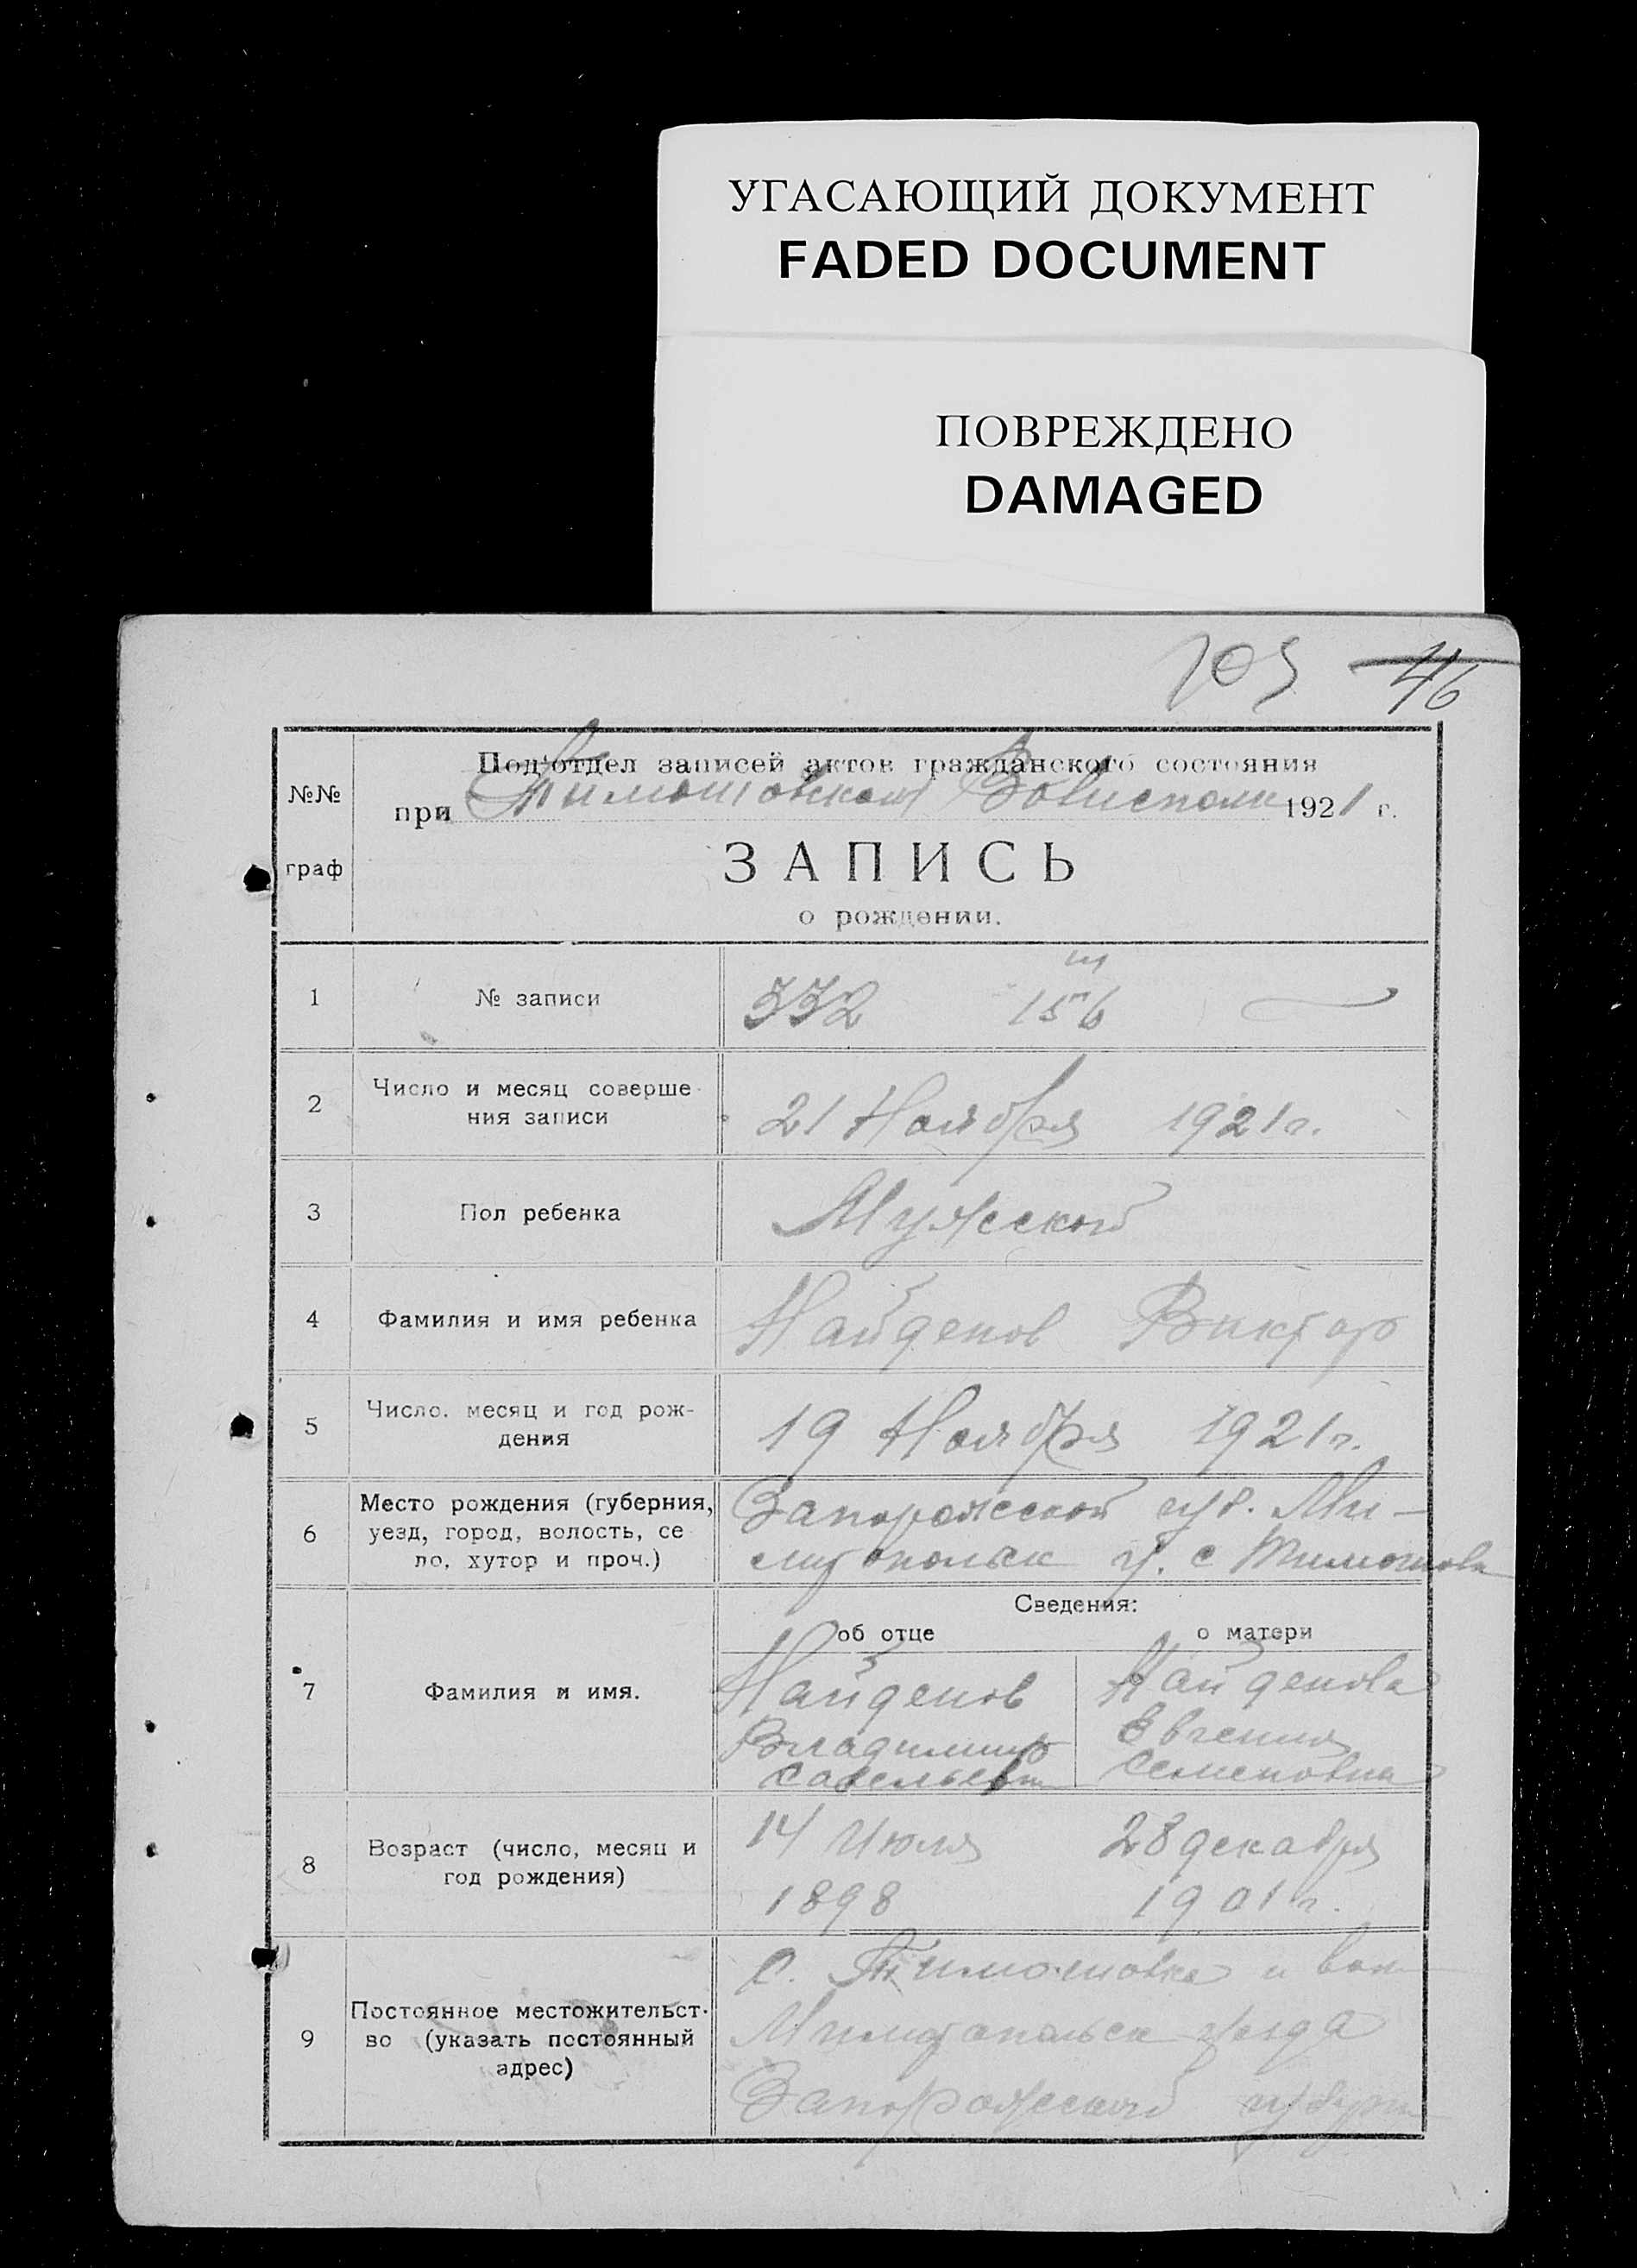 УГАСАЮЩИЙ ДОКУМЕНТ
FADED DOCUMENT
ПОВРЕЖДЕНО
DAMAGED
105 46
№№
граф
Под'отдел записей актов гражданского состояния
при Тимошовском Волисполк 1921 г.
ЗАПИСЬ
о рождении.
1 № записи 332 156
2 Число и месяц соверше-
ния записи 21 Ноября 1921 г.
3 Пол ребенка Мужской
4 Фамилия и имя ребенка Найденов Виктор
5 Число, месяц и год рож-
дения 19 Ноября 1921 г.
6 Место рождения (губерния,
уезд, город, волость, се
ло, хутор и проч.)
Запорожской губ. Ми-
литопольск у. с Тимошовк
Сведения:
об отце о матери
7 Фамилия и имя.
Найденов Найденова
Владимир Евгения
Савельевич Семеновна
8 Возраст (число, месяц и
год рождения)
14 Июля 28 декабря
1898 1901 г.
9 Постоянное местожительст-
во (указать постоянный
адрес)
С. Тимошовка и вол
Милитопольск уезда
Запорожской губерн